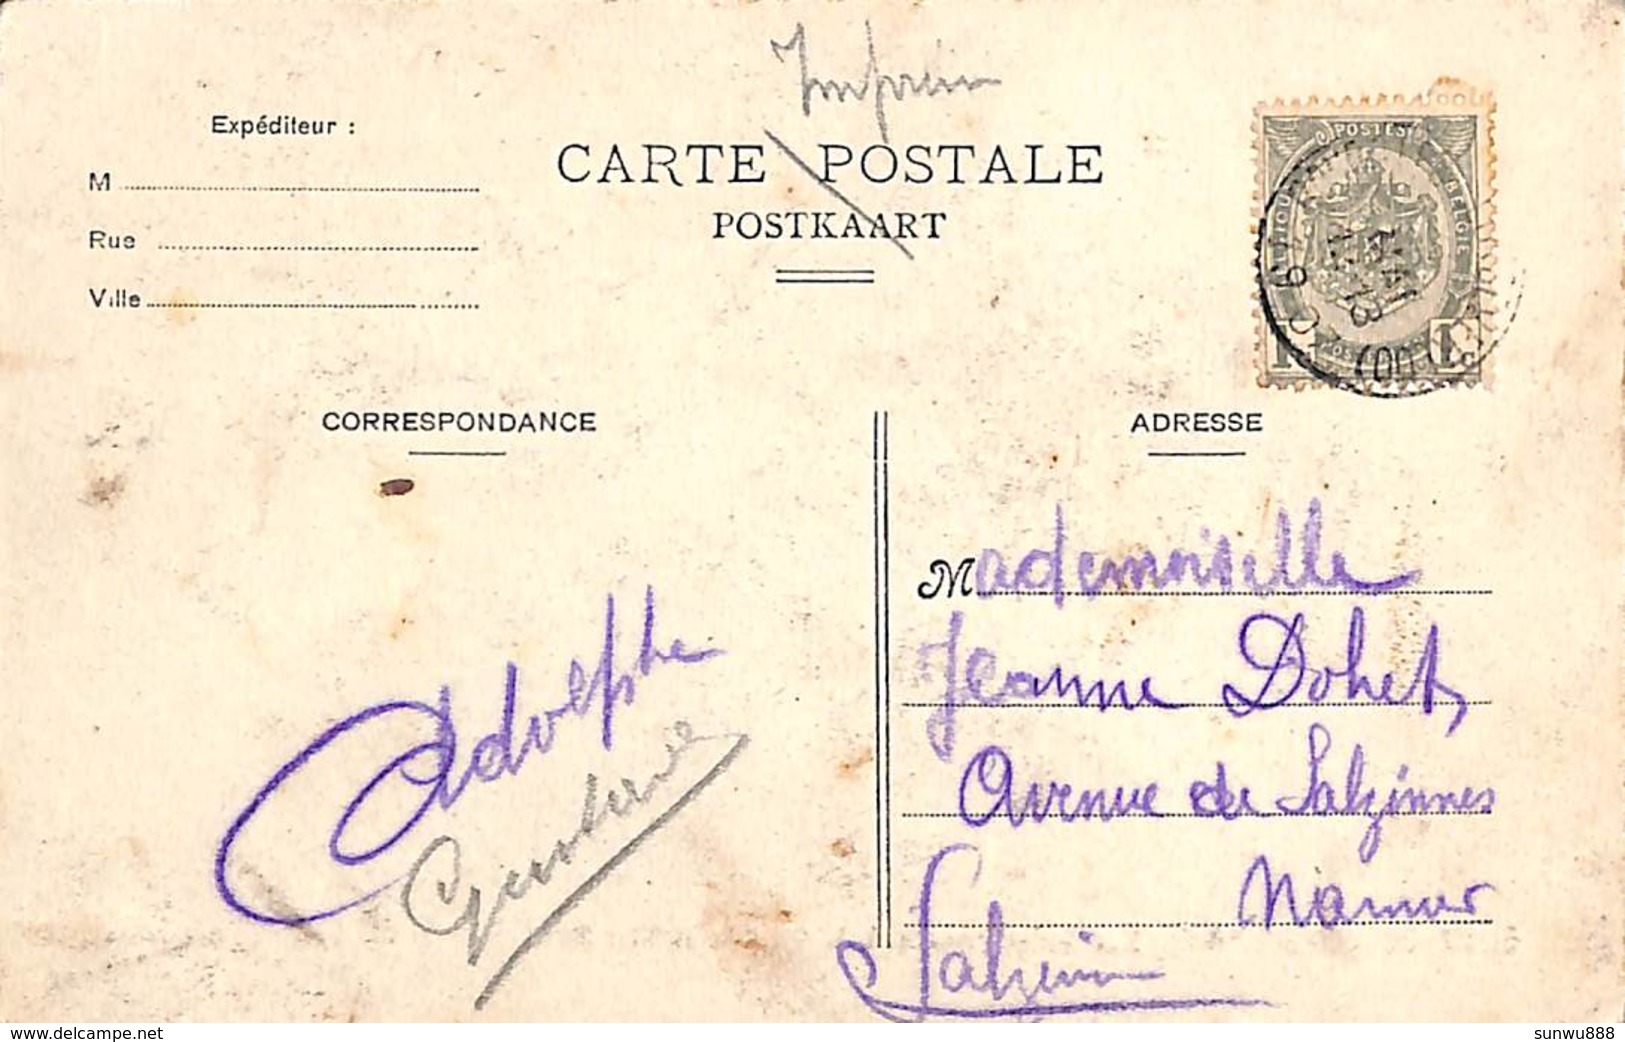 Expéditeur :
M
Rue
Ville
CARTE POSTALE
POSTKAART
POSTES
BELGIE
1 1
CORRESPONDANCE
ADRESSE
Adolphe
Mademoiselle
Jeanne Dohet,
Avenue de Salzinnes
Namur
Salzinn
delcampe.net
sunwu888